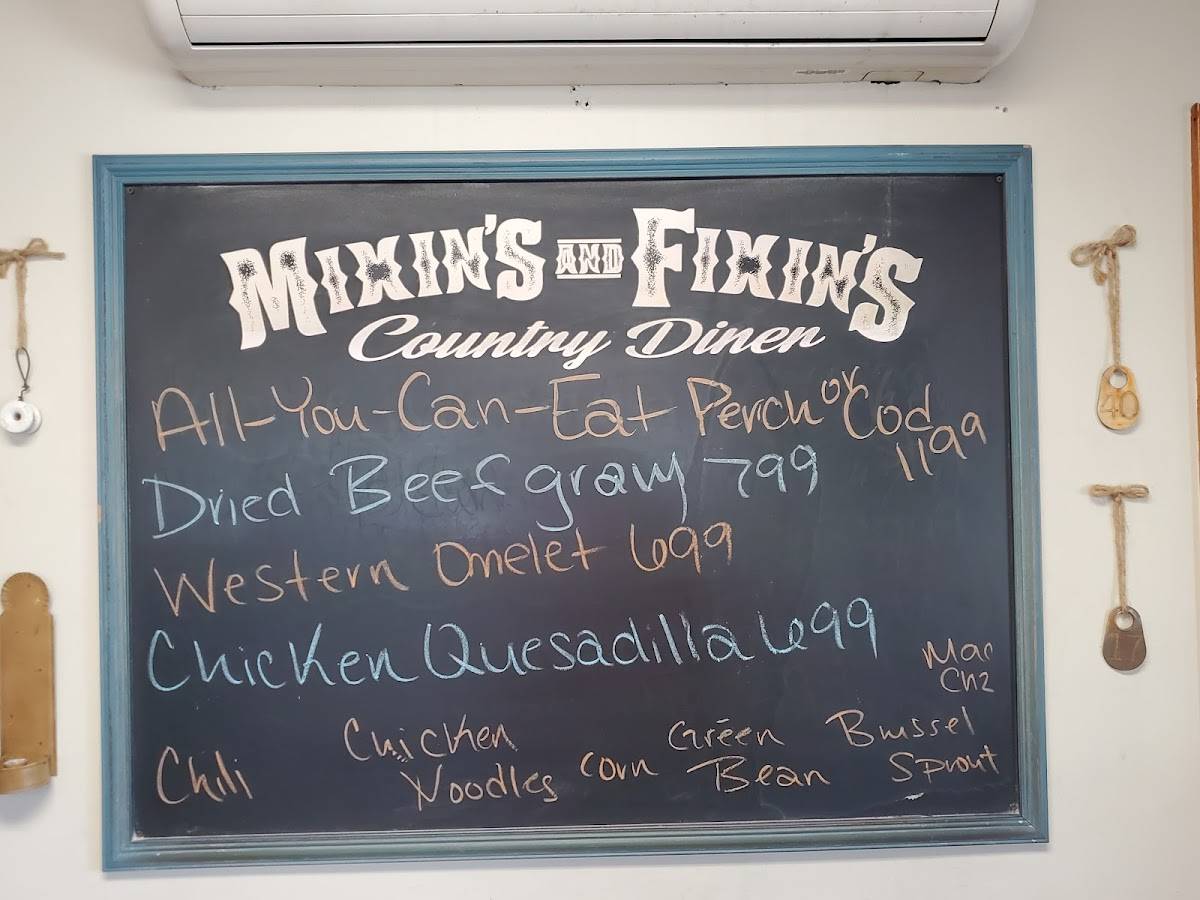 MIXIN'S AND FIXIN'S
Country Diner
All-You-Can-Eat Perch or Cod
1199
Dried Beef gravy 799
Western Omelet 699
Chicken Quesadilla 699
Mac
Chz
Chili
Chicken
Noodles
Corn
Green
Bean
Brussel
Sprout
40
17